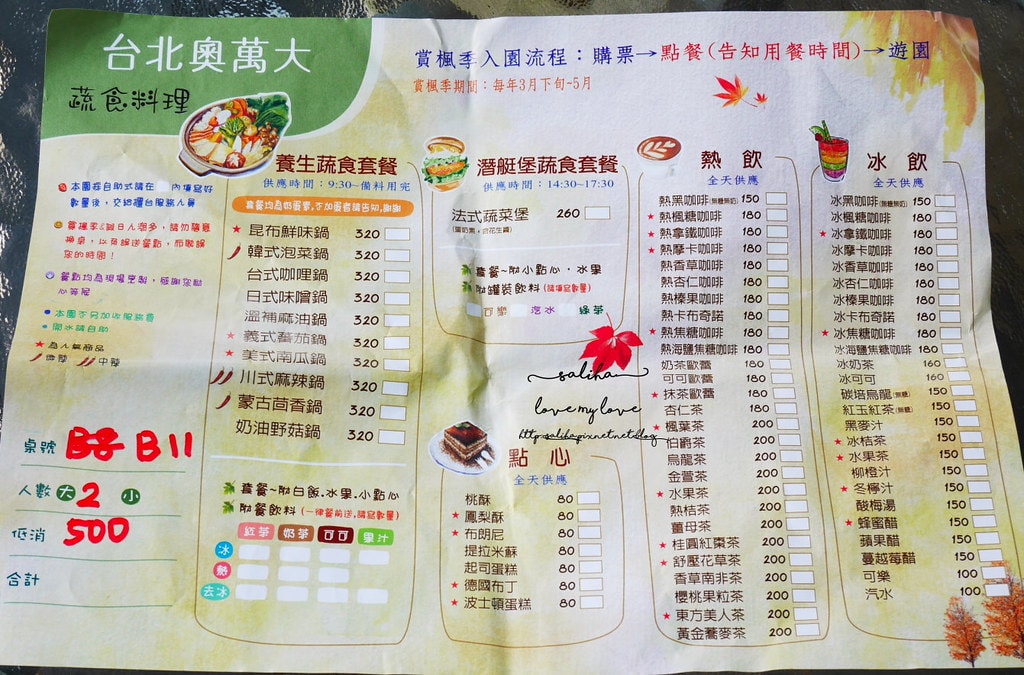 台北奧萬大
蔬食料理
賞楓季入園流程：購票→點餐(告知用餐時間)→遊園
賞楓季期間：每年3月下旬~5月
本園採自助式請在 內填寫好
數量後，交給櫃台服務人員
賞楓季&假日人潮多，請勿隨意
換桌，以免誤送餐點，而耽誤
您的時間！
餐點均為現場烹製，感謝您耐
心等候
本園不另加收服務費
開水請自助
★為人氣商品
微辣 中辣
桌號 B11
人數 大 2 小
低消 500
合計
養生蔬食套餐
供應時間：9:30~備料用完
套餐均為奶蛋素,不加蛋者請告知,謝謝
★昆布鮮味鍋 320
韓式泡菜鍋 320
台式咖哩鍋 320
日式味噌鍋 320
溫補麻油鍋 320
★義式蕃茄鍋 320
★美式南瓜鍋 320
川式麻辣鍋 320
蒙古茴香鍋 320
奶油野菇鍋 320
套餐~附白飯.水果.小點心
附餐飲料(一律餐前送,請寫數量)
紅茶 奶茶 可可 果汁
冰
熱
去冰
潛艇堡蔬食套餐
供應時間：14:30~17:30
法式蔬菜堡 260
套餐~附小點心．水果
附罐裝飲料(請填寫數量)
可樂 汽水 綠茶
saliha
love my love
點心
全天供應
桃酥 80
★鳳梨酥 80
★布朗尼 80
提拉米蘇 80
起司蛋糕 80
★德國布丁 80
★波士頓蛋糕 80
熱飲
全天供應
熱黑咖啡(無糖無奶) 150
★熱楓糖咖啡 180
★熱拿鐵咖啡 180
★熱摩卡咖啡 180
熱香草咖啡 180
熱杏仁咖啡 180
熱榛果咖啡 180
熱卡布奇諾 180
★熱焦糖咖啡 180
熱海鹽焦糖咖啡 180
奶茶歐蕾 180
可可歐蕾 180
★抹茶歐蕾 180
杏仁茶 180
★楓葉茶 200
伯爵茶 200
烏龍茶 200
金萱茶 200
★水果茶 200
熱桔茶 200
薑母茶 200
★桂圓紅棗茶 200
★舒壓花草茶 200
香草南非茶 200
櫻桃果粒茶 200
★東方美人茶 200
黃金蕎麥茶 200
冰飲
全天供應
冰黑咖啡(無糖無奶) 150
冰楓糖咖啡 180
★冰拿鐵咖啡 180
冰摩卡咖啡 180
冰香草咖啡 180
冰杏仁咖啡 180
冰榛果咖啡 180
冰卡布奇諾 180
★冰焦糖咖啡 180
冰海鹽焦糖咖啡 180
冰奶茶 160
冰可可 160
碳培烏龍(無糖) 150
紅玉紅茶(無糖) 150
黑麥汁 150
★冰桔茶 150
★水果茶 150
柳橙汁 150
★冬檸汁 150
酸梅湯 150
★蜂蜜醋 150
蘋果醋 150
蔓越莓醋 150
可樂 100
汽水 100